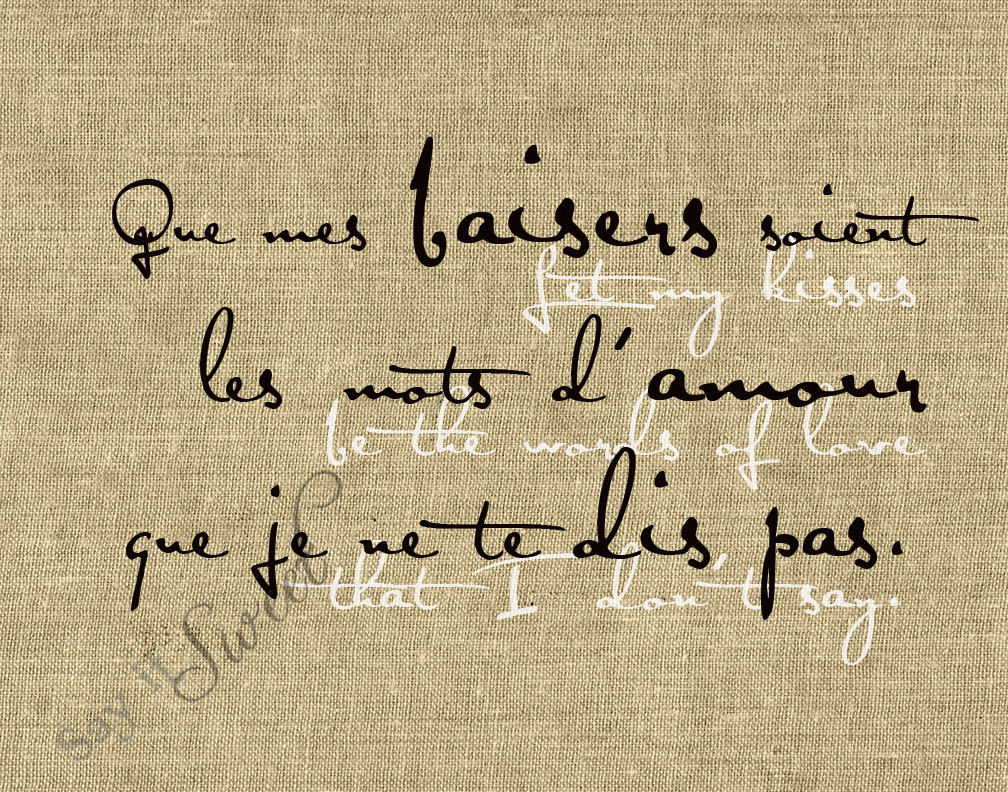 Que mes baisers soient
Let my kisses
les mots d'amour
be the words of love
que je ne te dis pas.
that I don't say.
say it Sweet